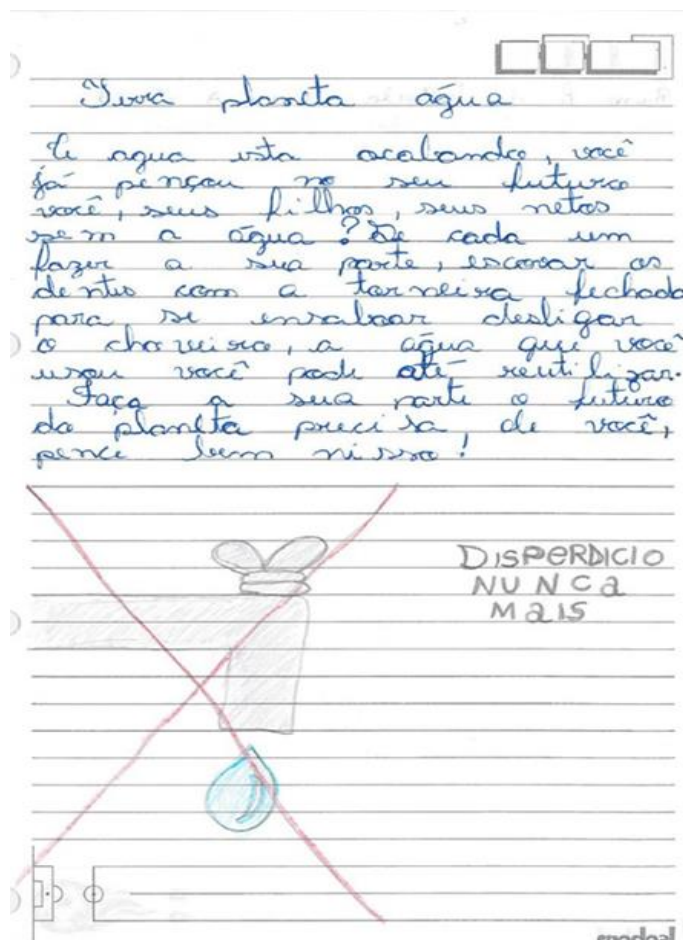 Terra planeta água
A agua esta acabando, você
já pençou no seu futuro
você, seus filhos, seus netos
sem a água? Se cada um
fazer a sua parte, escovar os
dentes com a torneira fechada
para se ensaboar desligar
o chuveiro, a água que você
usou você pode até reutilizar.
Faça a sua parte o futuro
do planeta precisa, de você,
pence bem nisso!
DISPERDICIO
NUNCA
MaIS